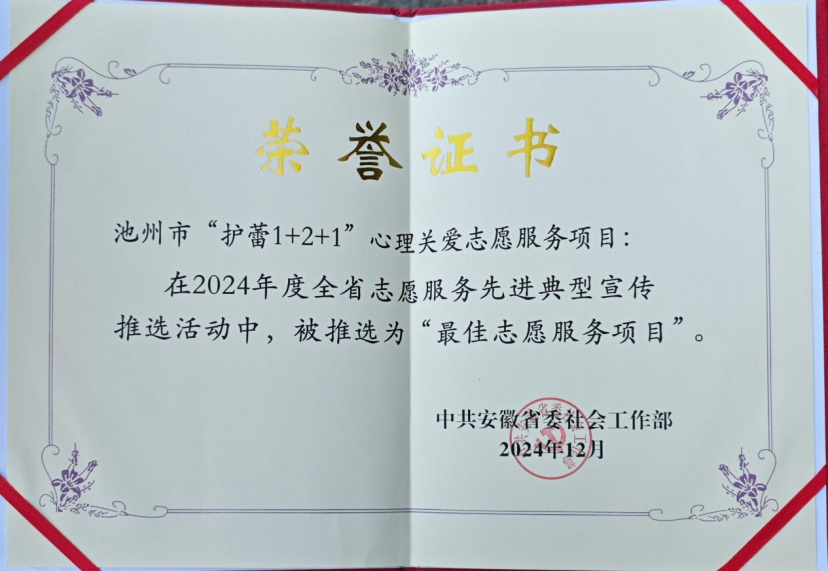 荣誉证书
池州市“护蕾1+2+1”心理关爱志愿服务项目：
在2024年度全省志愿服务先进典型宣传
推选活动中，被推选为“最佳志愿服务项目”。
中共安徽省委社会工作部
2024年12月